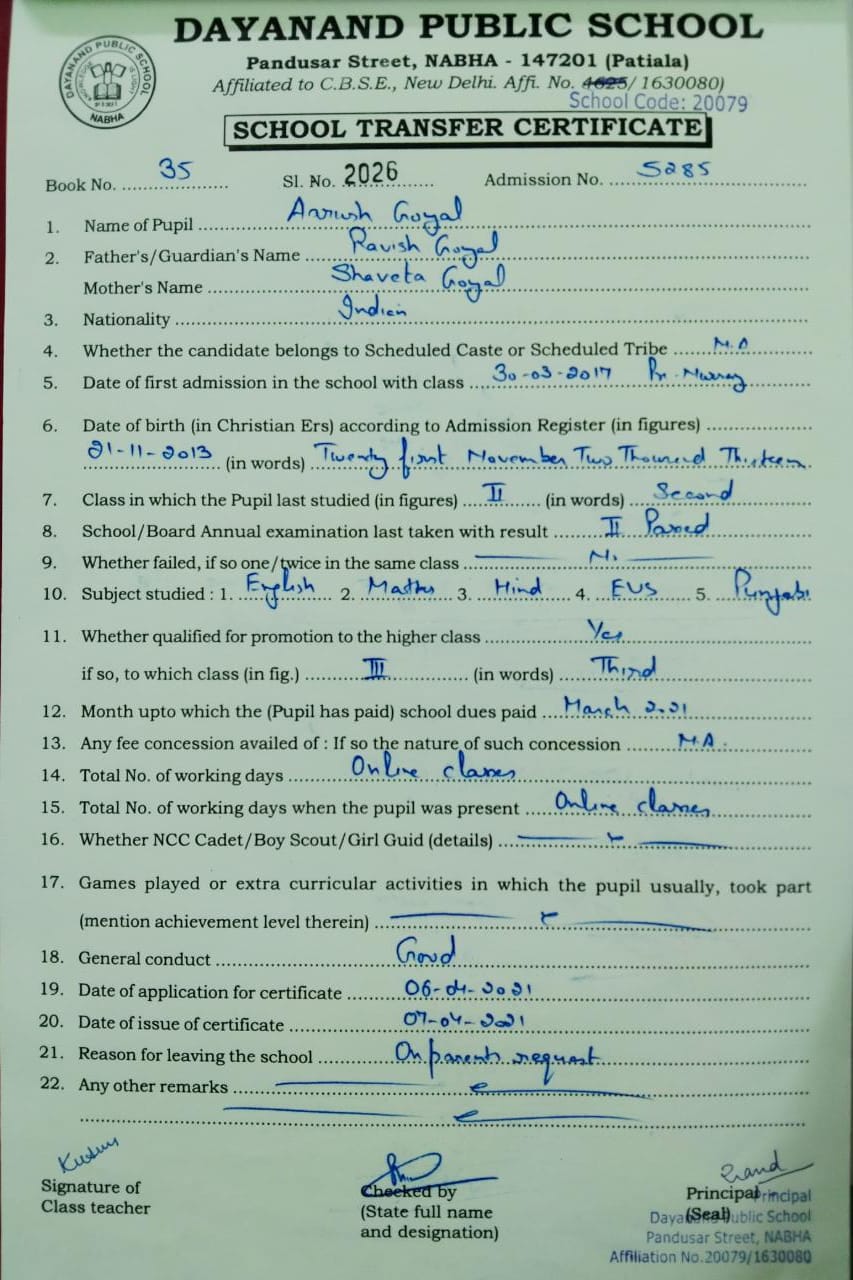 DAYANAND PUBLIC SCHOOL
DAYANAND PUBLIC SCHOOL
NABHA
Pandusar Street, NABHA - 147201 (Patiala)
Affiliated to C.B.S.E., New Delhi. Affi. No. 4625/ 1630080)
School Code: 20079
SCHOOL TRANSFER CERTIFICATE
Book No. 35 Sl. No. 2026 Admission No. 5285
1. Name of Pupil Goyal
2. Father's/Guardian's Name Ravish Goyal
Mother's Name Shaveta Goyal
3. Nationality Indian
4. Whether the candidate belongs to Scheduled Caste or Scheduled Tribe N.A
5. Date of first admission in the school with class 30-03-2017 Pr. Nursery
6. Date of birth (in Christian Ers) according to Admission Register (in figures)
21-11-2013 (in words) Twenty first November Two Thousand Thirteen
7. Class in which the Pupil last studied (in figures) II (in words) Second
8. School/Board Annual examination last taken with result II Passed
9. Whether failed, if so one/twice in the same class No
10. Subject studied : 1. English 2. Maths 3. Hindi 4. EVS 5. Punjabi
11. Whether qualified for promotion to the higher class Yes
if so, to which class (in fig.) III (in words) Third
12. Month upto which the (Pupil has paid) school dues paid March 2021
13. Any fee concession availed of : If so the nature of such concession N.A.
14. Total No. of working days Online classes
15. Total No. of working days when the pupil was present Online classes
16. Whether NCC Cadet/Boy Scout/Girl Guid (details)
17. Games played or extra curricular activities in which the pupil usually, took part
(mention achievement level therein)
18. General conduct Good
19. Date of application for certificate 06-04-2021
20. Date of issue of certificate 07-04-2021
21. Reason for leaving the school On parents request
22. Any other remarks
Signature of
Class teacher
Checked by
(State full name
and designation)
Principal
(Seal)
Principal
Dayanand Public School
Pandusar Street, NABHA
Affiliation No.20079/1630080